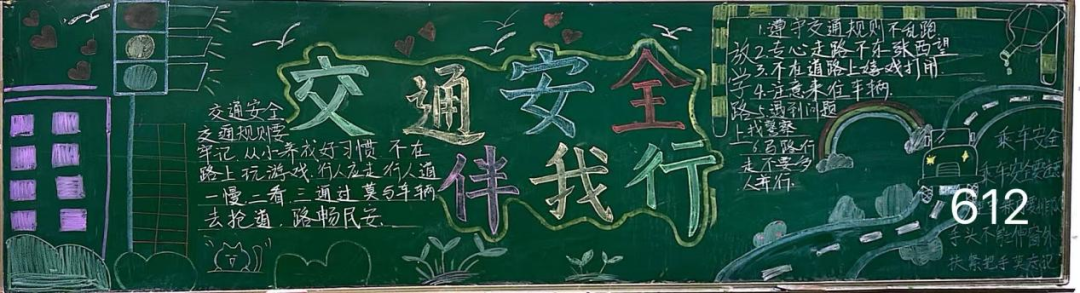 交通安全
伴我行
交通安全
交通规则要
牢记 从小养成好习惯 不在
路上玩游戏.行人应走行人道
一慢.二看.三通过 莫与车辆
去抢道.路畅民安.
放学路上
1.遵守交通规则不乱跑
2.专心走路不东张西望
3.不在道路上嬉戏打闹.
4.注意来往车辆.
5.遇到问题
找警察
6.马路行
走不要多
人并行.
乘车安全
乘车安全要注意
手头不能伸窗外
扶紧把手莫忘记
612